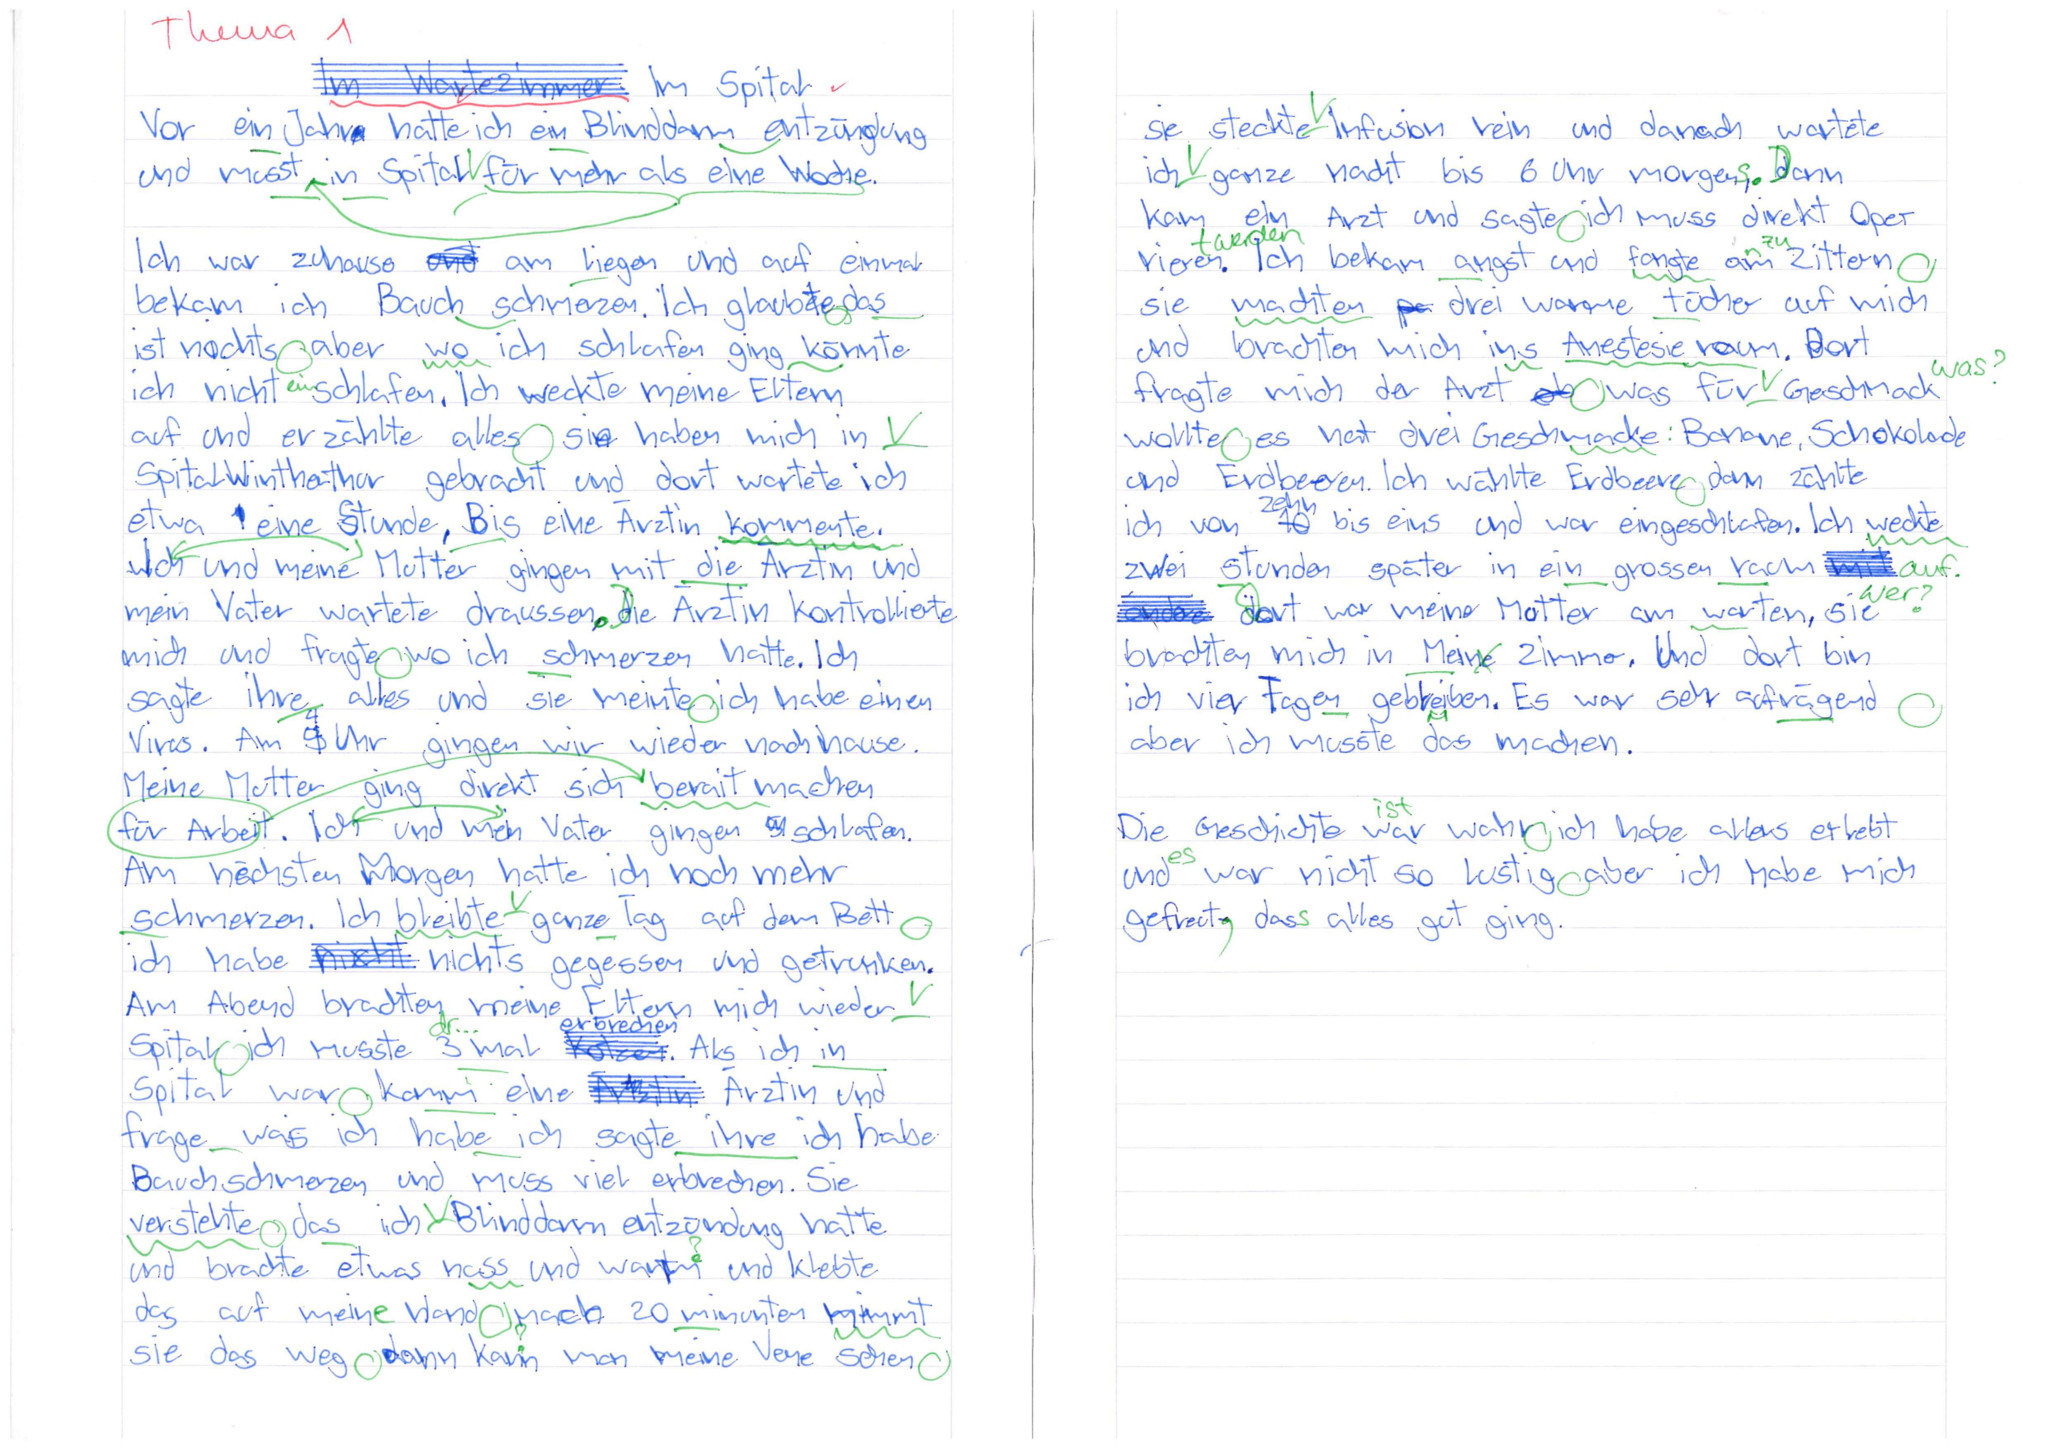 Thema 1
Im Wartezimmer Im Spital
Vor ein Jahr hatte ich ein Blinddarm entzünglung
und musst in Spital für mehr als eine Woche.
Ich war zuhause und am liegen und auf einmal
bekam ich Bauch schmerzen. Ich glaubte das
ist nochts aber wo ich schlafen ging könnte
ich nicht einschlafen. Ich weckte meine Eltern
auf und erzählte alles sie haben mich in
Spital Winthathur gebracht und dort wartete ich
etwa eine Stunde, Bis eine Ärztin kommente.
Ich und meine Mutter gingen mit die Ärztin und
mein Vater wartete draussen. Die Ärztin kontrollierte
mich und fragte wo ich schmerzen hatte. Ich
sagte ihre alles und sie meinte ich habe einen
Virus. Am 4 Uhr gingen wir wieder nachhause.
Meine Mutter ging direkt sich berait machen
für Arbeit. Ich und mein Vater gingen schlafen.
Am nächsten Morgen hatte ich noch mehr
schmerzen. Ich bleibte ganze Tag auf dem Bett
ich habe nicht nichts gegessen und getrunken.
Am Abend brachten meine Eltern mich wieder
dr... erbrechen
Spital ich musste 3 mal Kotzen. Als ich in
Spital war kamm eine Ärztin Ärztin und
frage was ich habe ich sagte ihre ich habe
Bauchschmerzen und muss viel erbrechen. Sie
verstehte das ich Blinddarm entzündung hatte
und brachte etwas nass und warm ? und klebte
das auf meine Hand nach 20 minunten nimmt
sie das weg dann kann ? man meine Vene sehen
sie steckte Infusion rein und danach wartete
ich ganze nacht bis 6 Uhr morgens. Dann
kam ein Arzt und sagte ich muss direkt Oper
+werden zu
rieren. Ich bekam angst und fangte an Zittern
sie machten drei warme tücher auf mich
und brachten mich ins Anestesie raum. Dort
was?
fragte mich der Arzt ob was für Geschmack
wollte es hat drei Geschmacke: Banane, Schokolade
und Erdbeeren. Ich wählte Erdbeere dann zählte
zehn
ich von 10 bis eins und war eingeschlafen. Ich weckte
zwei stunden später in ein grossen raum mit auf.
wer?
andre dort war meine Mutter am warten, sie
brachten mich in Mein Zimmer. Und dort bin
ich vier Tagen gebleiben. Es war sehr aufrägend
aber ich musste das machen.
ist
Die Geschichte war wahr ich habe alles erlebt
und es war nicht so lustig aber ich habe mich
gefreut, dass alles gut ging.